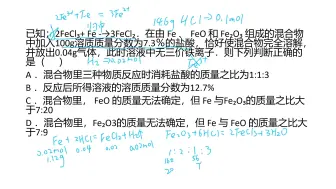 2Fe³⁺+Fe=3Fe²⁺
146g 4Cl→0.1mol
已知:2FeCl₃+ Fe →3FeCl₂。在由 Fe 、 FeO 和 Fe₂O₃ 组成的混合物
中加入100g溶质质量分数为7.3%的盐酸，恰好使混合物完全溶解，
并放出0.04g气体，此时溶液中无三价铁离子．则下列判断正确的
是（ ）
H₂=0.02mol
A ．混合物里三种物质反应时消耗盐酸的质量之比为1:1:3
B ．反应后所得溶液的溶质质量分数为12.7%
C ．混合物里， FeO 的质量无法确定，但 Fe 与Fe₂O₃的质量之比大
于7:20
D ．混合物里，Fe2O3的质量无法确定，但 Fe 与 FeO 的质量之比大
于7:9
Fe+2HCl=FeCl₂+H₂↑ Fe₂O₃+6HCl=2FeCl₃+3H₂O
0.02mol 0.04 0.02 0.02mol
1.12g
1:2:1:3
160 56
20 7